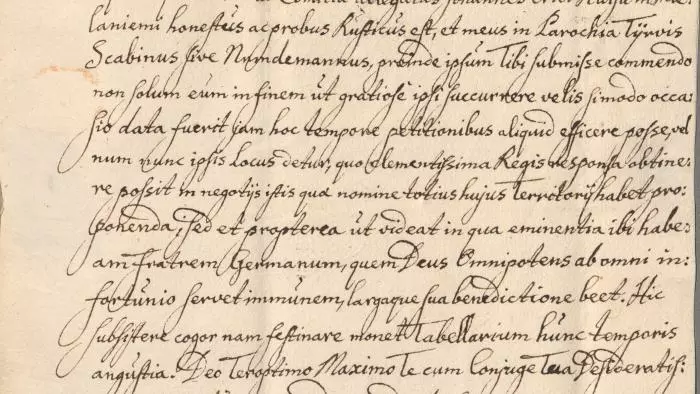 laniemi honestus ac probus Rusticus est, et meus in Parochia Tyrvis
Scabinus sive Nämdemannus, proinde ipsum Tibi submisse commendo
non solum eum in finem ut gratiose ipsi succurrere velis si modo occa-
sio data fuerit jam hoc tempore petitionibus aliquid efficere posse, vel
num nunc ipsis locus detur, quo elementissima Regis responsa obtine-
re possit in negotijs istis quæ nomine totius hujus Territorij habet pro-
ponenda; sed et propterea ut videat in qua eminentia ibi habe-
am fratrem Germanum, quem Deus Omnipotens ab omni in-
fortunio servet immunem, largaque sua benedictione beet. Hic
subsistere cogor nam festinare monet Tabellarium hunc temporis
angustia. Deo Teroptimo Maximo Te cum Conjuge Tua